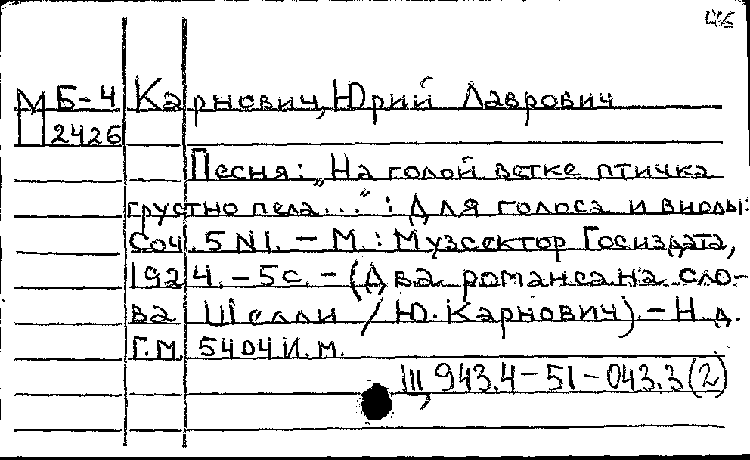 46
М Б-4 Карнович, Юрий Лаврович
П 2426
Песня: „На голой ветке птичка
грустно пела...": Для голоса и виолы:
Соч. 5 N1. - М.: Музсектор Госиздата,
1924. - 5с. - (Два романса на сло-
ва Шелли / Ю. Карнович). - Н.д.
Г.М. 5404 И.М.
Ш, 943.4-51-043.3(2)